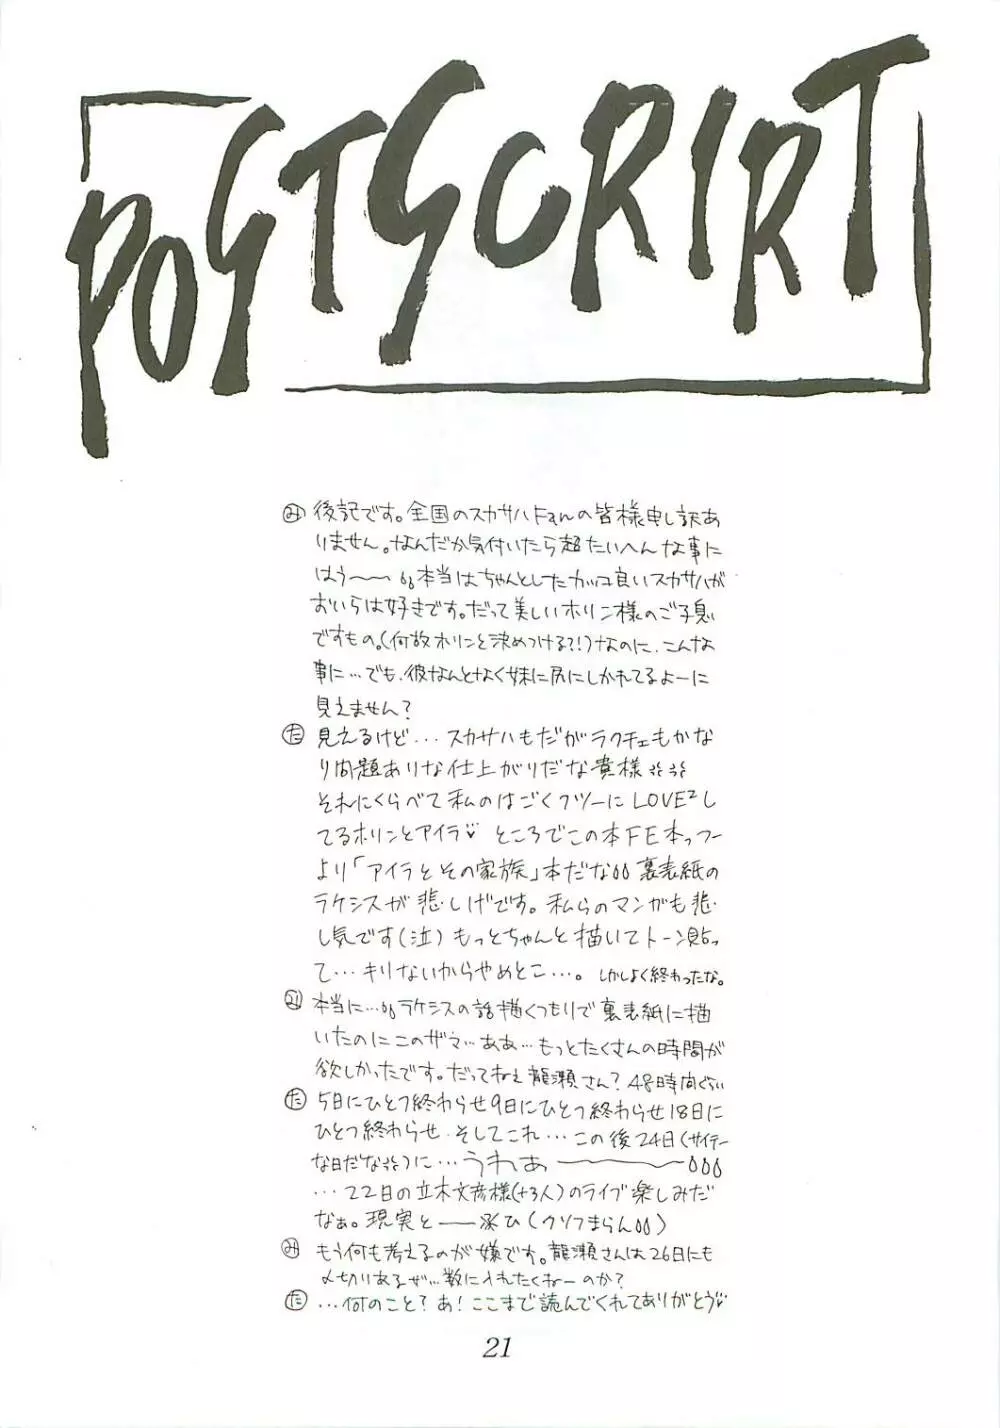 POSTSCRIPT
み 後記です。全国のスカサハFanの皆様申し訳あ
りません。なんだか気付いたら超たいへんな事に
はう〜〜 本当はちゃんとしたカッコ良いスカサハが
おいらは好きです。だって美しいホリン様のご子息
ですもの。(何故ホリンと決めつける?!)なのに、こんな
事に…でも、彼なんとなく妹に尻にしかれてるよーに
見えません?
た 見えるけど…スカサハもだがラクチェもかな
り問題ありな仕上がりだな貴様
それにくらべて私のはごくフツーにLOVE²し
てるホリンとアイラ♡ ところでこの本FE本っつー
より「アイラとその家族」本だな 裏表紙の
ラケシスが悲しげです。私らのマンガも悲
し気です(泣)もっとちゃんと描いてトーン貼っ
て…キリないからやめとこ…。しかしよく終わったな。
み 本当に… ラケシスの話描くつもりで裏表紙に描
いたのにこのザマ…ああ…もっとたくさんの時間が
欲しかったです。だってねぇ龍瀬さん?48時間ぐらい
た 5日にひとつ終わらせ9日にひとつ終わらせ18日に
ひとつ終わらせ、そしてこれ…この後24日(サイテー
な日だな)に…うわぁ〜〜
…22日の立木文彦様(+3人)のライブ楽しみだ
なぁ。現実とーーひ(クソつまらん)
み もう何も考えるのが嫌です。龍瀬さんは26日にも
〆切りあるぜ…数に入れたくねーのか?
た …何のこと?あ!ここまで読んでくれてありがとう♡
21